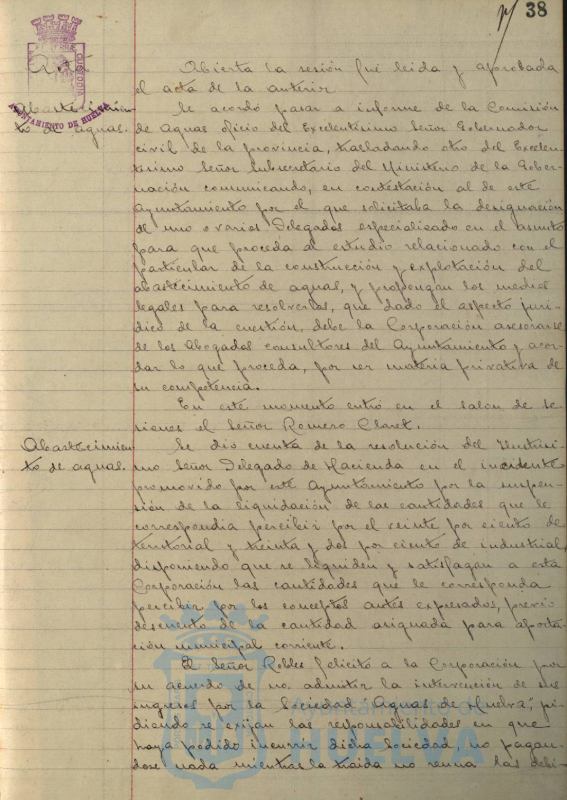 38
Acta
Abierta la sesión fué leida y aprobada
el acta de la anterior.
Abastecimien-
to de aguas.
AYUNTAMIENTO DE HUELVA
Se acordó pasar a informe de la Comisión
de Aguas oficio del Excelentísimo Señor Gobernador
civil de la provincia, trasladando otro del Excelen-
tísimo Señor Subsecretario del Ministerio de la Gober-
nación comunicando, en contestación al de este
Ayuntamiento por el que solicitaba la designación
de uno o varios Delegados especializado en el asunto
para que proceda al estudio relacionado con el
particular de la construcción y explotación del
abastecimiento de aguas, y propongan los medios
legales para resolverlos, que dado el aspecto jurí-
dico de la cuestión, debe la Corporación asesorarse
de los Abogados consultores del Ayuntamiento y acor-
dar lo que proceda, por ser materia privativa de
su competencia.
En este momento entró en el salón de se-
siones el Señor Romero Claret.
Abastecimien-
to de aguas.
Se dió cuenta de la resolución del Ilustrísi-
mo Señor Delegado de Hacienda en el incidente
promovido por este Ayuntamiento por la suspen-
sión de la liquidación de las cantidades que le
correspondia percibir por el veinte por ciento de
territorial y treinta y dos por ciento de industrial,
disponiendo que se liquiden y satisfagan a esta
Corporación las cantidades que le corresponda
percibir por los conceptos antes expresados, previo
descuento de la cantidad asignada para aporta-
ción municipal corriente.
El Señor Robles felicitó a la Corporación por
su acuerdo de no admitir la intervención de sus
ingresos por la Sociedad "Aguas de Huelva", pi-
diendo se exijan las responsabilidades en que
haya podido incurrir dicha Sociedad, no pagan-
dose nada mientras la traida no reuna las debi-
HUELVA